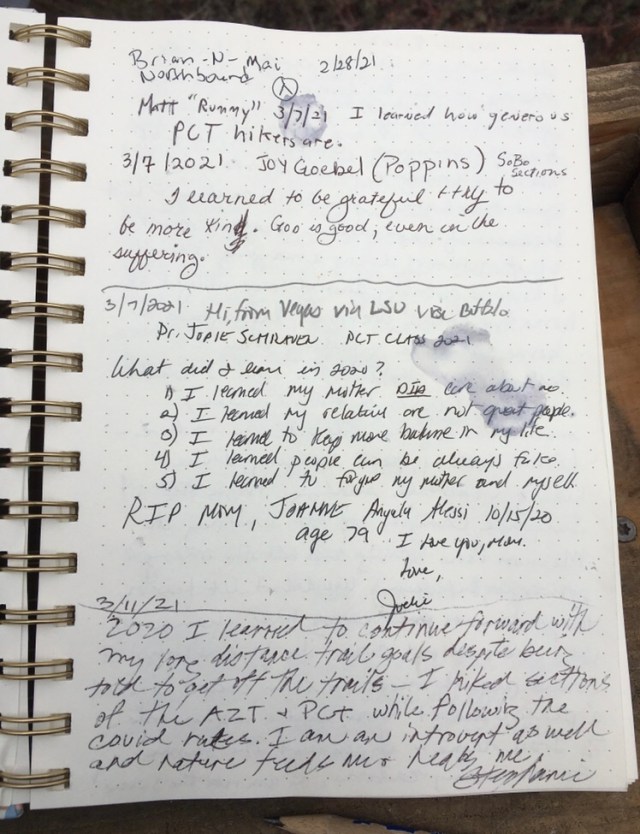 Brian-N-Mai 2/28/21
Northbound
Matt "Rummy" 3/7/21 I learned how generous
PCT hikers are.
3/7/2021 JOY Goebel (Poppins) SoBo
sections
I learned to be grateful + try to
be more kind. God is good, even in the
suffering.
3/7/2021 Hi, from Vegas via LSU via Buffalo
Dr. JODIE PCT CLASS 2021
What did I learn in 2020?
1) I learned my mother DID care about me.
2) I learned my relatives are not great people.
3) I learned to keep more balance in my life.
4) I learned people can be always fake.
5) I learned to forgive my mother and myself.
RIP MOM, JOANNE Angela Alessi 10/15/20
age 79. I love you, Mom.
Love,
Jodie
3/11/21
2020 I learned to continue forward with
my long distance trail goals despite being
told to get off the trails - I hiked sections
of the AZT + PCT while following the
covid rules. I am an introvert as well
and nature feeds me + heals me.
Stephanie